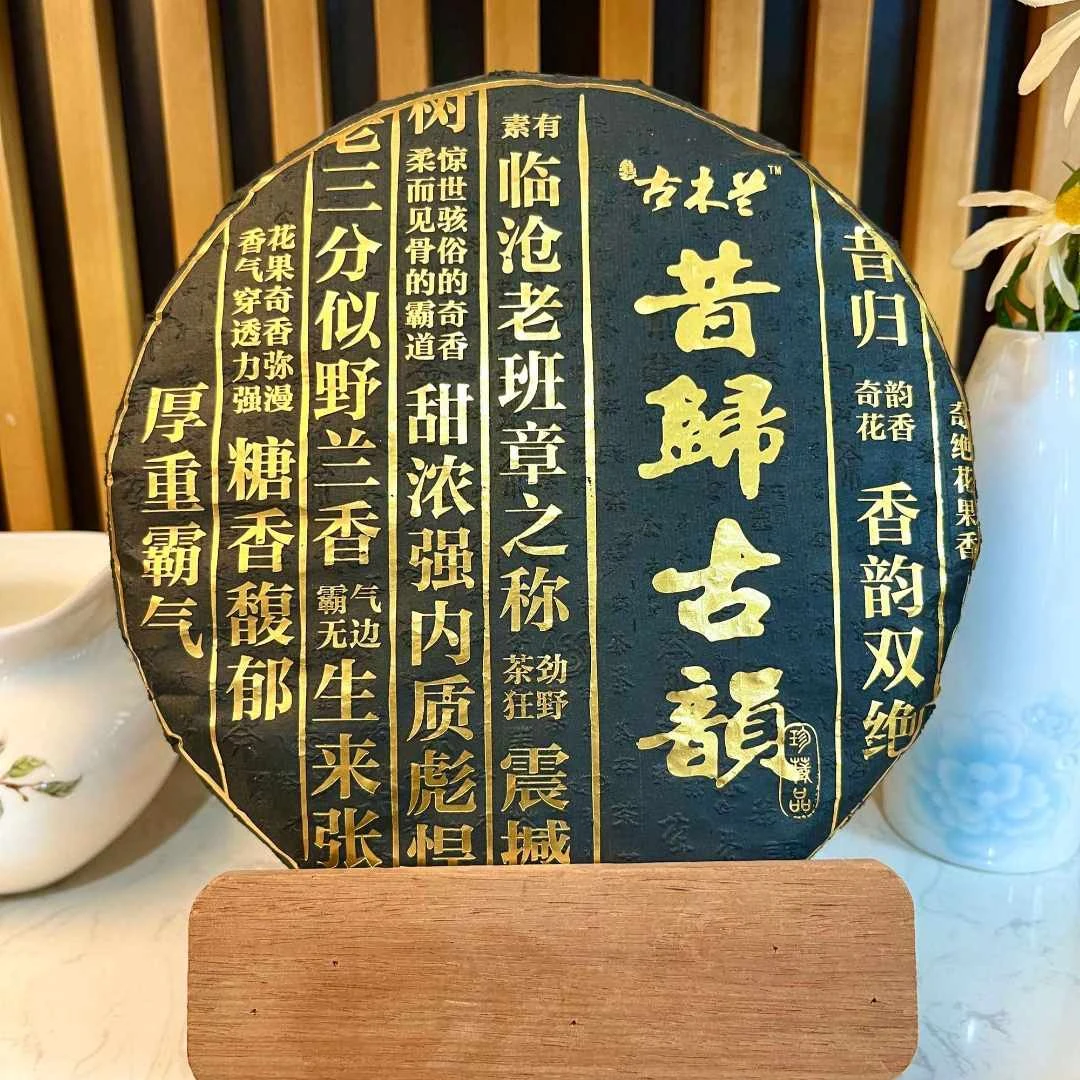 奇绝花果香
昔归
奇韵
花香
香韵双绝
古木兰™
昔歸古韻
珍藏品
素有
临沧老班章之称
茶劲
狂野
震撼
树
惊世骇俗的奇香
柔而见骨的霸道
甜浓强内质彪悍
老三分似野兰香
霸气
无边
生来张
花果奇香弥漫
香气穿透力强
糖香馥郁
厚重霸气